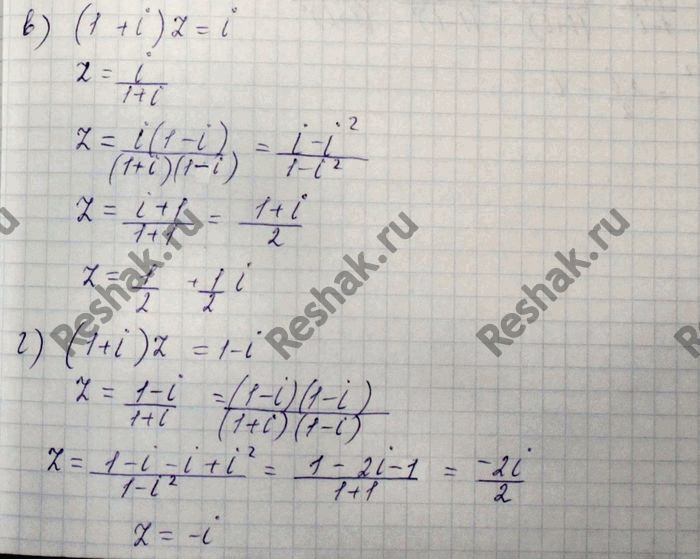 в) (1 + i) z = i
z = i/(1+i)
z = i(1-i)/((1+i)(1-i)) = (i-i²)/(1-i²)
z = (i+1)/(1+1) = (1+i)/2
z = 1/2 + 1/2 i
г) (1+i) z = 1-i
z = (1-i)/(1+i) = ((1-i)(1-i))/((1+i)(1-i))
z = (1-i-i+i²)/(1-i²) = (1-2i-1)/(1+1) = -2i/2
z = -i
Reshak.ru
Reshak.ru
Reshak.ru